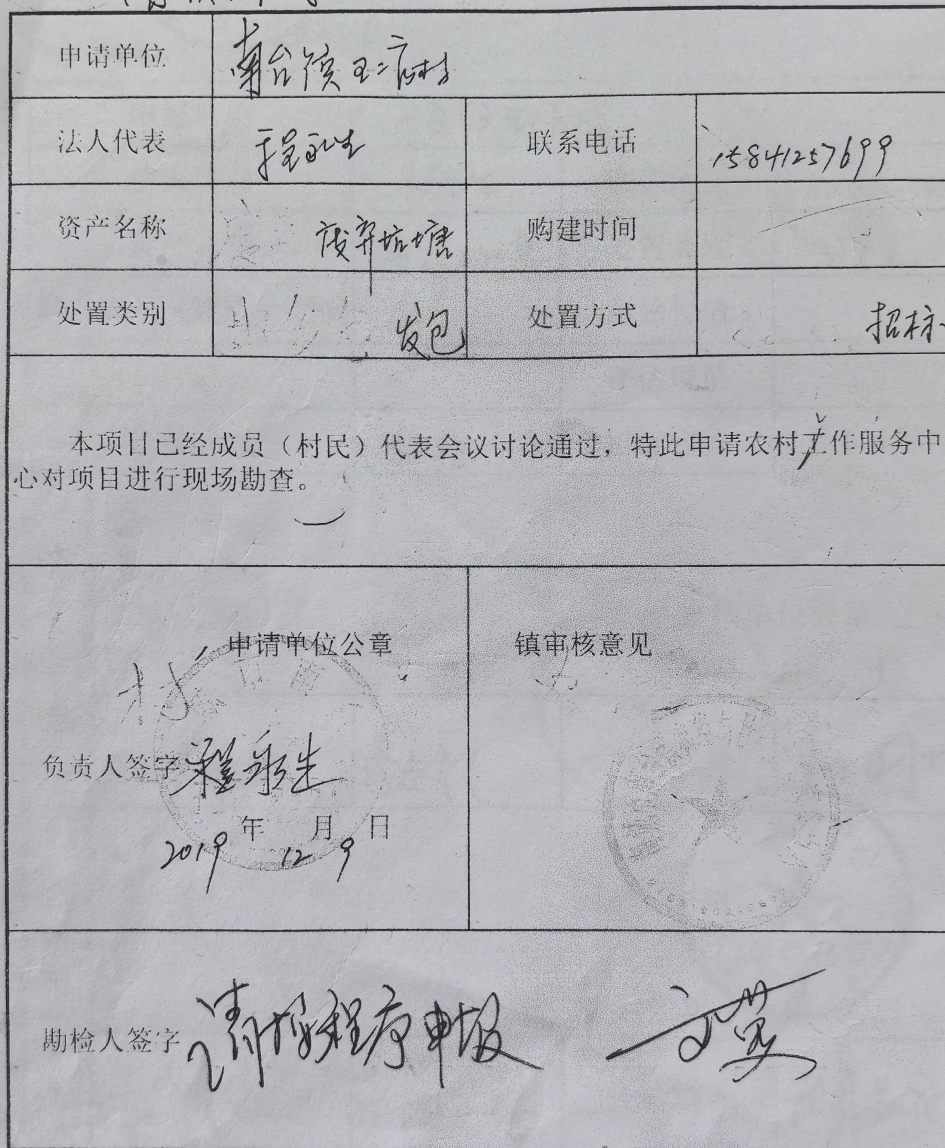 申请单位 南台镇王二官村
法人代表 程永生 联系电话 15841257699
资产名称 废弃坑塘 购建时间
处置类别 发包 处置方式 招标
本项目已经成员（村民）代表会议讨论通过，特此申请农村工作服务中
心对项目进行现场勘查。
申请单位公章 镇审核意见
负责人签字 程永生
2019年12月9日
勘检人签字 请按程序申报